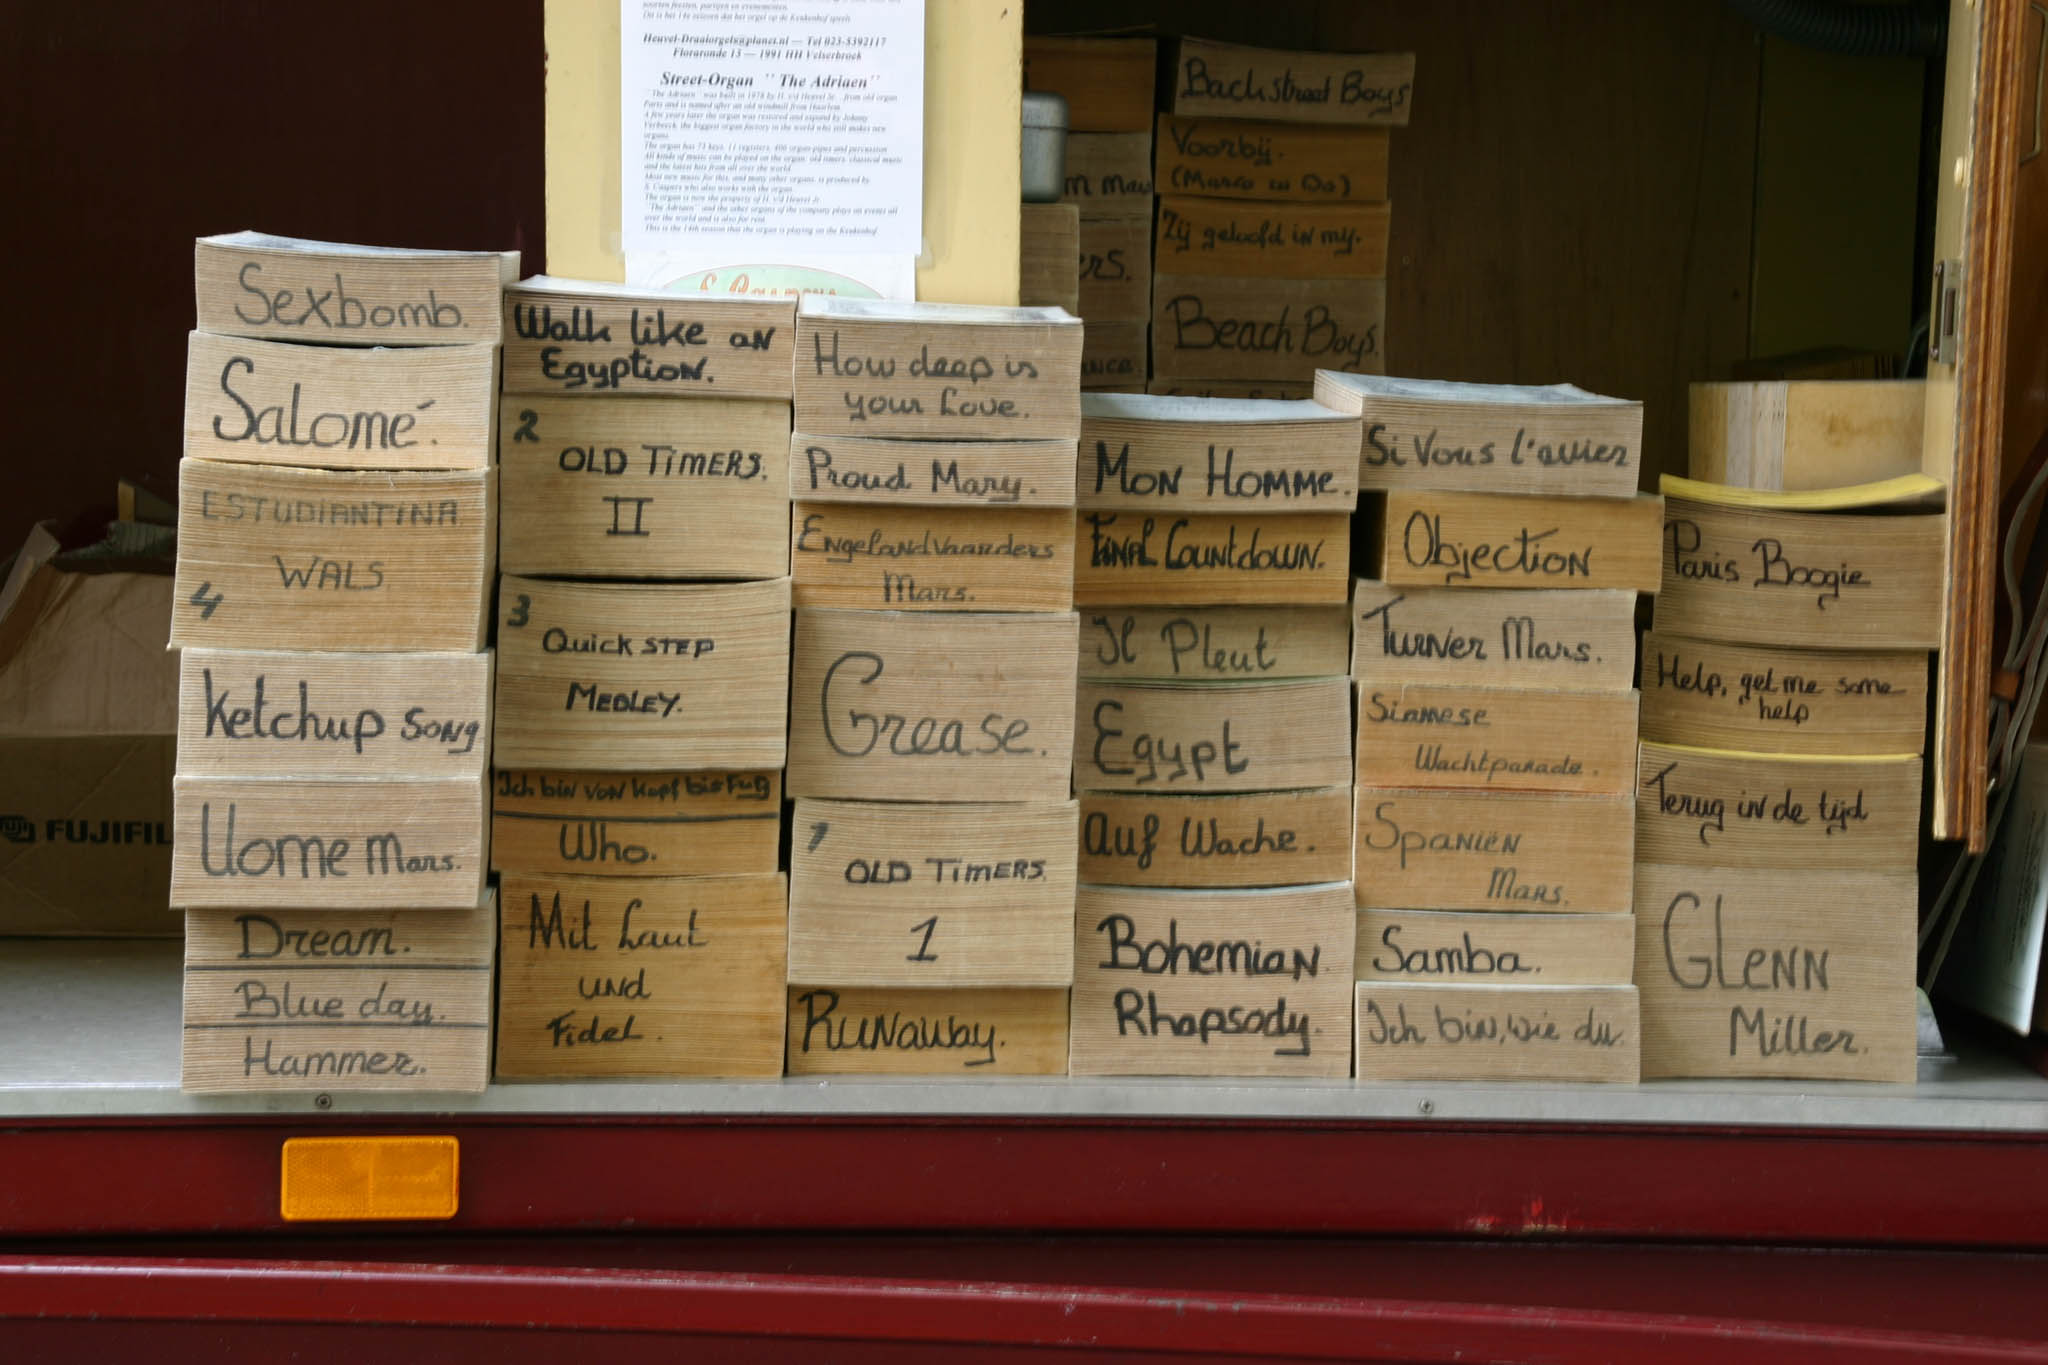 Dit is het 14e seizoen dat het orgel op de Keukenhof speelt
Heuvel-Draaiorgels@planet.nl — Tel 023-5392117
Floraronde 13 — 1991 HH Velserbroek
Street-Organ " The Adriaen"
"The Adriaen" was built in 1978 by H. v/d Heuvel Sr., from old organ
Parts and is named after an old windmill from Haarlem.
A few years later the organ was restored and expand by Johnny
Verbeeck, the biggest organ factory in the world who still makes new
organs.
The organ has 73 keys, 11 registers, 406 organ-pipes and percussion
All kinds of music can be played on the organ: old timers, classical music
and the latest hits from all over the world.
Most new music for this, and many other organs, is produced by
S. Caspers who also works with the organ.
The organ is now the property of H. v/d Heuvel Jr.
"The Adriaen" and the other organs of the company plays on events all
over the world and is also for rent.
This is the 14th season that the organ is playing on the Keukenhof.
Backstreet Boys
Voorbij.
(Marco en Do)
Zij geloofd in my.
Beach Boys.
Sexbomb.
Salomé.
ESTUDIANTINA
WALS
4
Ketchup Song
Uome Mars.
Dream.
Blue day.
Hammer.
FUJIFIL
Walk like an
Egyption.
2
OLD TIMERS.
II
3
Quick STEP
MEDLEY.
Ich bin von Kopf bis Fuß
Who.
Mit Laut
und
Fidel.
How deep is
your Love.
Proud Mary.
Engelandvaarders
Mars.
Grease.
1
OLD TIMERS.
1
Runaway.
Mon Homme.
Final Countdown.
Il Pleut
Egypt
Auf Wache.
Bohemian
Rhapsody.
Si Vous l'aviez
Objection
Turner Mars.
Siamese
Wachtparade.
Spaniën
Mars.
Samba.
Ich bin, wie du.
Paris Boogie
Help, get me some
help
Terug in de tijd
Glenn
Miller.